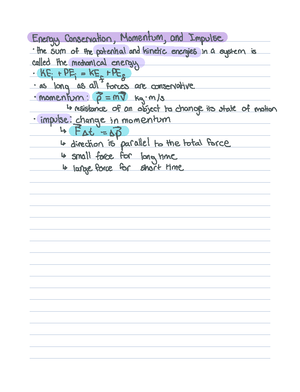 Energy Conservation, Momentum, and Impulse
• the sum of the potential and kinetic energies in a system is
called the mechanical energy
• KEi + PEi = KEf + PEf
• as long as all forces are conservative
• momentum: p⃗ = mv⃗ kg·m/s
↳ resistance of an object to change its state of motion
• impulse: change in momentum
↳ F⃗Δt = Δp⃗
↳ direction is parallel to the total force
↳ small force for long time
↳ large force for short time